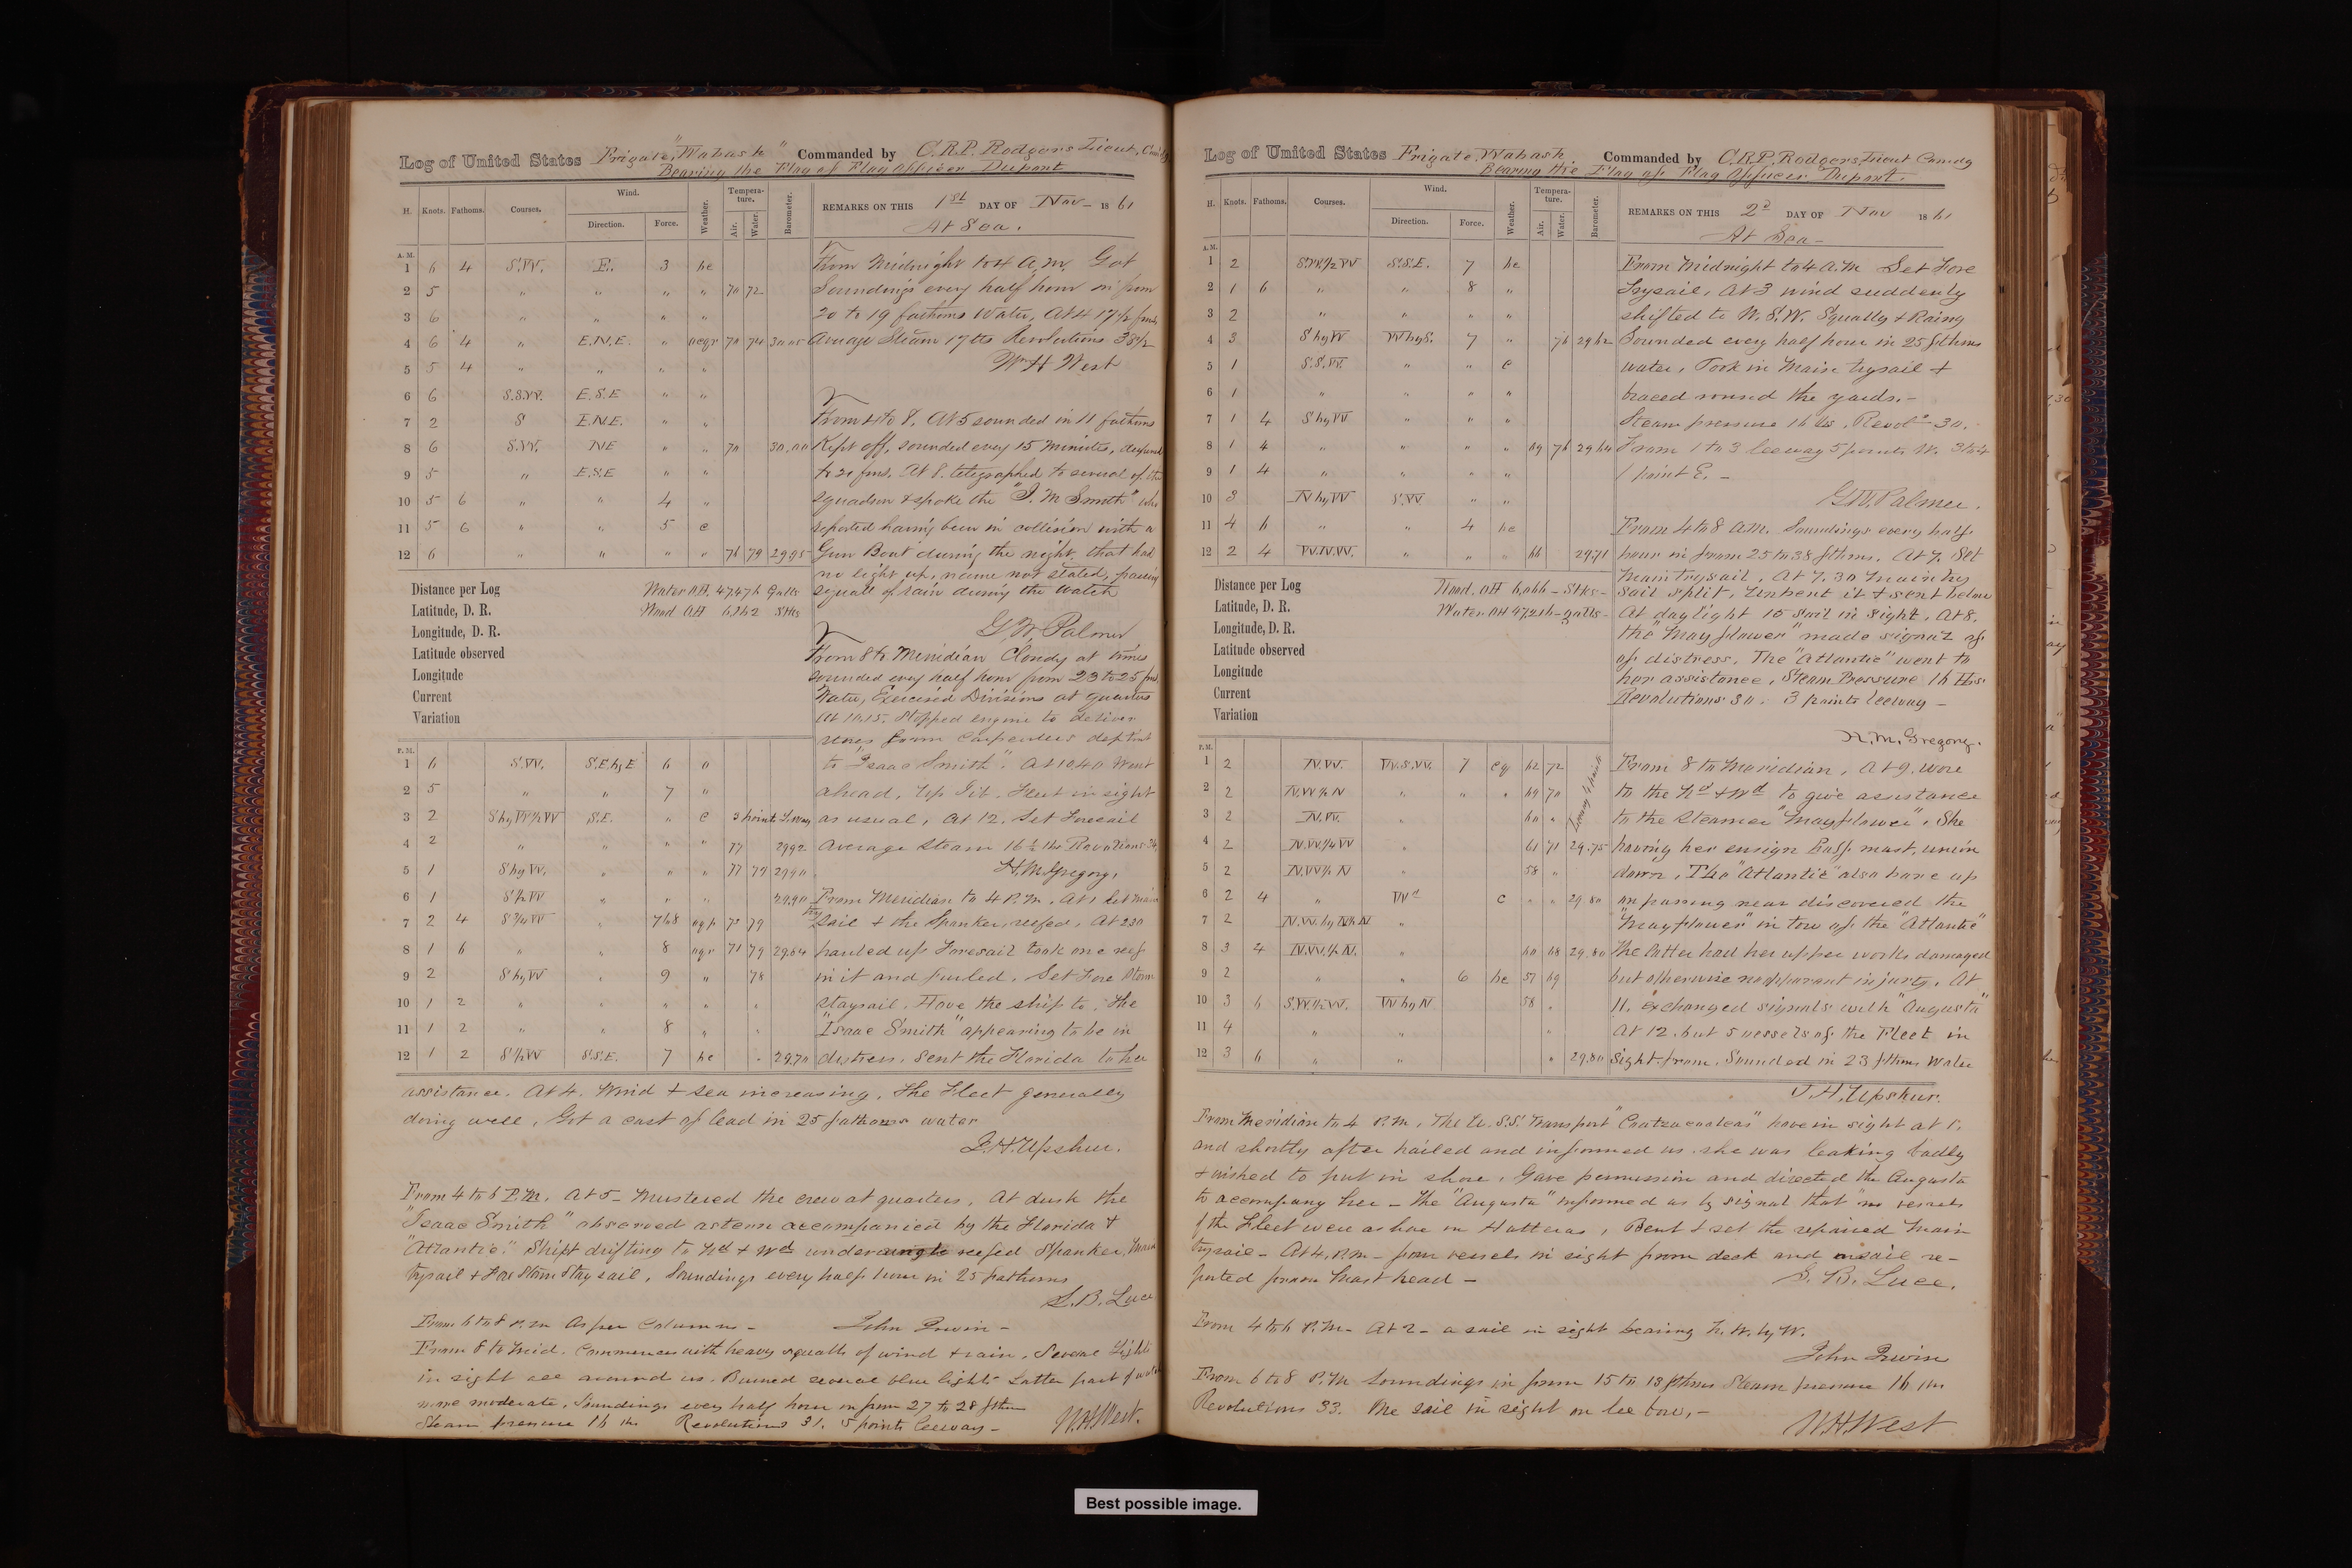 Log of United States Frigate "Wabash" Commanded by C.R.P. Rodgers Lieut,
Bearing the Flag of Flag Officer Dupont
H. Knots. Fathoms. Courses. Wind. Direction. Force. Weather. Tempera-ture. Air. Water. Barometer.
REMARKS ON THIS 1st DAY OF Nov- 1861
At Sea.
A.M.
1 6 4 S.W. E. 3 bc
2 5 " " " " 70 72
3 6 " " " "
4 6 4 " E.N.E. " ocqr 70 74 30.05
5 5 4 " " " "
6 6 S.S.W. E.S.E " "
7 2 S E.N.E. " "
8 6 S.W. NE " " 70 30.00
9 5 " E.S.E " "
10 5 6 " " 4 "
11 5 6 " " 5 c
12 6 " " " " 76 79 29.95
From Midnight to 4 A.M. Got
Soundings every half hour in from
20 to 19 fathoms Water, At 4 17½ fms,
Average Steam 17 lbs Revolutions 38½
Wm H West
From 4 to 8. At 5 sounded in 11 fathoms
Kept off, sounded every 15 Minutes,
to 20 fms. At 8. telegraphed to several of the
squadron & spoke the "I. M Smith" who
reported having been in collision with a
Gun Boat during the night, that had
no light up, name not stated, passing
squall of rain during the watch
G. W. Palmer
From 8 to Meridian Cloudy at times
sounded every half hour from 23 to 25 fms
Water, Exercised Divisions at quarters
At 10.15. Stopped engine to deliver
from Carpenters
to "Isaac Smith". At 10.40 Went
ahead, Up Jib. Fleet in sight
as usual, At 12. Set Foresail
average steam 16½ lbs
H. M. Gregory,
Distance per Log
Latitude, D. R.
Longitude, D. R.
Latitude observed
Longitude
Current
Variation
Water OH. 47,476 Galls
Wood OH 6,162 Stks
P.M.
1 6 S.W. S.E by E 6 o
2 5 " " 7 "
3 2 S by W½W S.E. " c 3 points Leeway
4 2 " " " " 77 29.92
5 1 S by W. " " " 77 79 29.90
6 1 S½W " " " 29.90
7 2 4 S¾W " 7&8 79
8 1 6 " " 8 71 79 29.84
9 2 S by W " 9 " 78
10 1 2 " " " " "
11 1 2 " " 8 " "
12 1 2 S½W S.S.E. 7 bc " 29.70
From Meridian to 4 P.M. At 1 Set Main
try sail & the Spanker, reefed, At 2.30
hauled up Foresail took one reef
in it and furled. Set Fore Storm
staysail. Hove the ship to. The
"Isaac Smith" appearing to be in
distress. Sent the Florida to her
assistance. At 4. Wind & sea increasing, the Fleet generally
doing well, Got a cast of lead in 25 fathoms water
J. H. Upshur.
From 4 to 6 P.M. At 5- Mustered the crew at quarters, At dusk the
"Isaac Smith" observed astern accompanied by the Florida &
"Atlantic." Ship drifting to Nd & Wd under reefed Spanker, Main
trysail & Fore Storm Stay sail, Soundings every half hour in 25 fathoms
S. B. Luce
From 6 to 8 P.M As per Columns- John Irwin-
From 8 to Mid. Commences with heavy squalls of wind & rain. Several Lights
in sight all around us. Burned several blue lights Latter part of watch
more moderate, Soundings every half hour in from 27 to 28 fthms
Steam pressure 16 lbs Revolutions 31. 5 points leeway-
W.H.West.
Log of United States Frigate Wabash Commanded by C.R.P. Rodgers, Lieut Comdg
Bearing the Flag of Flag Officer Dupont.
H. Knots. Fathoms. Courses. Wind. Direction. Force. Weather. Tempera-ture. Air. Water. Barometer.
REMARKS ON THIS 2d DAY OF Nov 1861
At Sea-
A.M.
1 2 S.W.½W S.S.E. 7 bc
2 1 6 " " 8 "
3 2 " " " "
4 3 S by W W by S. 7 " 76 29.62
5 1 S.S.W. " " c
6 1 " " " "
7 1 4 S by W " " "
8 1 4 " " " " 69 76 29.64
9 1 4 " " " "
10 3 N by W S.W. " "
11 4 6 " " 4 bc
12 2 4 W.N.W. " " " 66 29.71
From Midnight to 4 A.M Set Fore
Trysail, At 3 wind suddenly
shifted to W.S.W. Squally & Rainy
Sounded every half hour in 25 fthms
water, Took in Main trysail &
braced round the yards.-
Steam pressure 16 lbs. Revolns 30.
From 1 to 3 leeway 5 points W. 3 to 4
1 point E.-
G.W. Palmer.
From 4 to 8 AM. Soundings every half
hour in from 25 to 38 fthms. At 7. Set
Main trysail. At 7.30 Main try
sail split, Unbent it & sent below
At daylight 15 sail in sight. At 8.
the "Mayflower" made signal of
of distress. The "Atlantic" went to
her assistance, Steam Pressure 16 lbs
Revolutions 30. 3 points leeway-
H. M. Gregory.
Distance per Log
Latitude, D. R.
Longitude, D. R.
Latitude observed
Longitude
Current
Variation
Wood. OH 6,066- Stks-
Water OH 47,216- galls-
P.M.
1 2 N.W. W.S.W. 7 cq 62 72
2 2 N.W½N " " " 69 70
3 2 N.W. " 60 "
4 2 N.W.¼W " 61 71 29.75
5 2 N.W½N " 58 "
6 2 4 " Wd c " " 29.80
7 2 "
8 3 4 N.W.½N. " 60 68 29.80
9 2 " " 6 bc 57 69
10 3 6 S.W.½W. W by N 58 "
11 4 " " "
12 3 6 " " " 29.80
Leeway 4 points
From 8 to Meridian, At 9. wore
to the Nd & Wd to give assistance
to the steamer "Mayflower". She
having her ensign half mast, union
down, The "Atlantic" also bore up
on passing near discovered the
"Mayflower" in tow of the "Atlantic"
the latter had her upper works damaged
but otherwise no apparent injury. At
11. exchanged signals with "Augusta"
At 12. but 5 vessels of the Fleet in
sight from. Sounded in 23 fthms Water
J. H. Upshur.
From Meridian to 4 P.M, The U.S.S. Transport "Coatzacoalcos" hove in sight at 1.
and shortly after hailed and informed us she was leaking badly
& wished to put in shore, Gave permission and directed the Augusta
to accompany her- The "Augusta" informed us by signal that "no vessels
of the Fleet were ashore on Hatteras, Bent & set the repaired Main
trysail- At 4, P.M- four vessels in sight from deck and re-
ported from Mast head-
S. B. Luce.
From 4 to 6 P.M- At 2- a sail in sight bearing N.W. by W.
John Irwin
From 6 to 8 P.M Soundings in from 15 to 18 fthms Steam pressure 16 lbs
Revolutions 33. One sail in sight on lee bow,-
W.H.West
Best possible image.